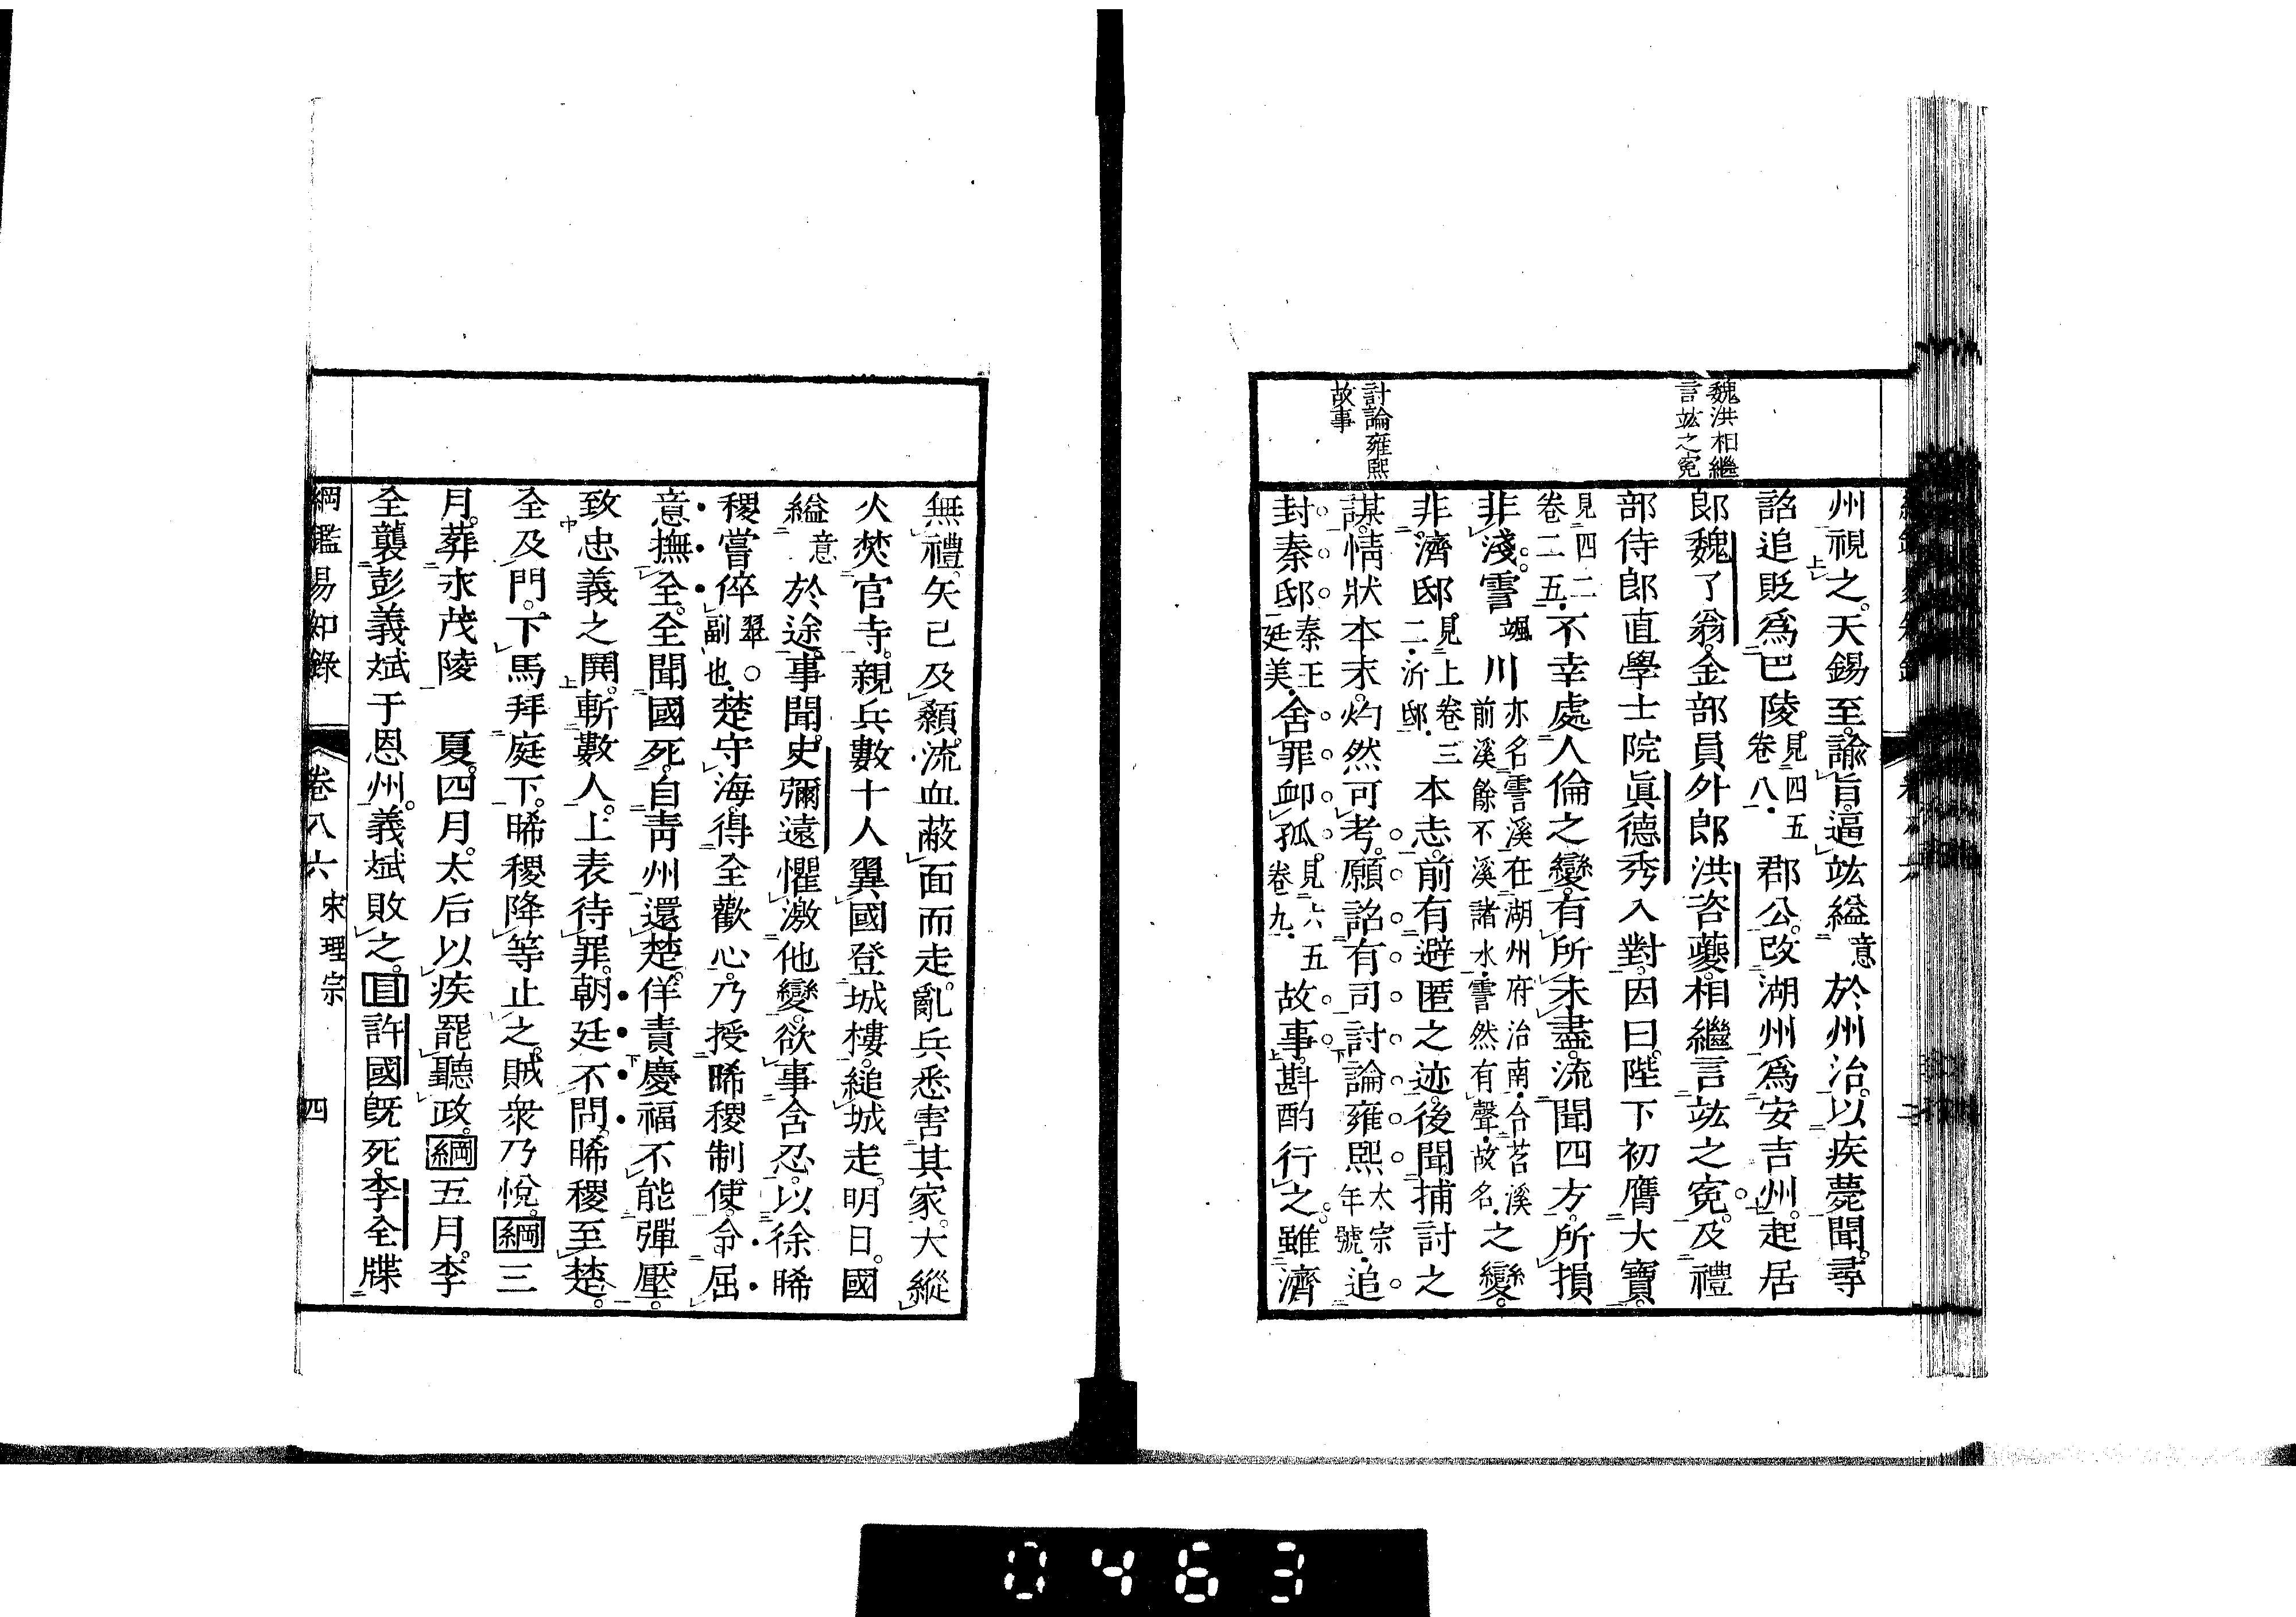 魏洪相繼
言竑之寃
討論雍熙
故事
州視之。天錫至。諭旨逼竑縊意於州治。以疾薨聞。尋
詔追貶爲巴陵。見四五卷八郡公。改湖州爲安吉州。起居
郞魏了翁。金部員外郞洪咨夔。相繼言竑之寃。及禮
部侍郞直學士院眞德秀入對。因曰。陛下初膺大寶。
見四二卷二五不幸處人倫之變。有所未盡。流聞四方。所損
非淺。霅颯川亦名霅溪在湖州府治南合苕溪前溪餘不溪諸水霅然有聲故名之變。
非濟邸見上卷三二沂邸本志。前有避匿之迹。後聞捕討之
謀。情狀本末。灼然可考。願詔有司討論雍熙太宗年號追
封秦邸秦王廷美舍罪卹孤。見六五卷九故事。斟酌行之。雖濟
無禮。矢已及顙。流血蔽面而走。亂兵悉害其家。大縱
火焚官寺。親兵數十人翼國登城樓。縋城走。明日。國
縊意於途。事聞。史彌遠懼激他變。欲事含忍。以徐晞
稷嘗倅翠○副也楚守海。得全歡心。乃授晞稷制使。令屈
意撫全。全聞國死。自靑州還楚。佯責慶福不能彈壓。
致忠義之鬨。斬數人。上表待罪。朝廷不問。晞稷至楚。
全及門。下馬拜庭下。晞稷降等止之。賊衆乃悅。綱三
月。葬永茂陵 夏。四月。太后以疾罷聽政。綱五月。李
全襲彭義斌于恩州。義斌敗之。目許國旣死。李全牒
綱鑑易知錄 卷八六 宋理宗 四
0463